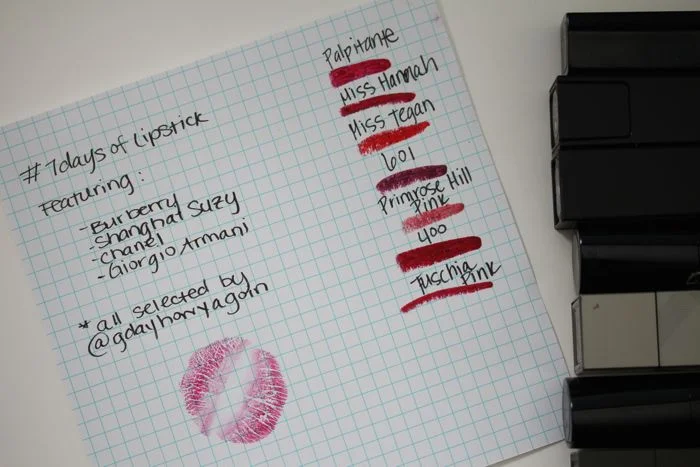 #7days of Lipstick
Featuring:
-Burberry
-Shanghai Suzy
-Chanel
-Giorgio Armani
* all selected by
@gdayharryagain
Palpitante
Miss Hannah
Miss Tegan
601
Primrose Hill
Pink
400
Fuschia Pink